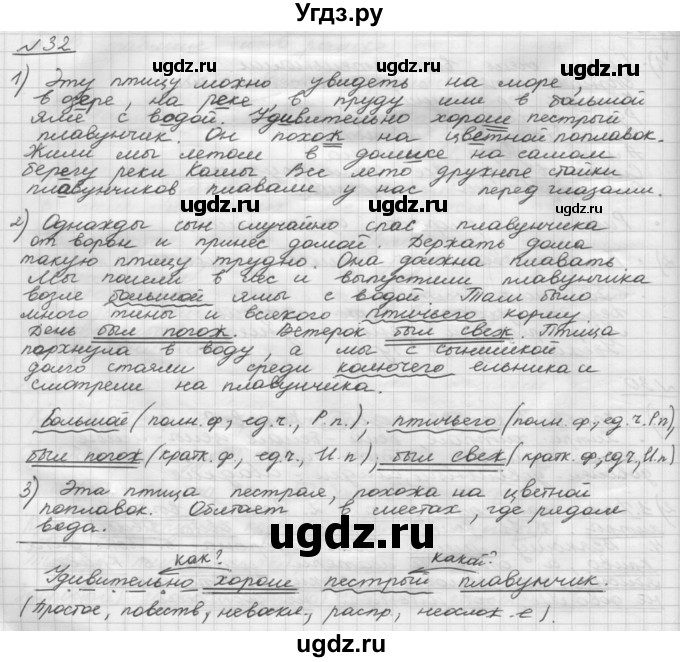 Угдз.ру
№ 32
1) Эту птицу можно увидеть на море,
в озере, на реке, в пруду или в большой
яме с водой. Удивительно хорош пестрый
плавунчик. Он похож на цветной поплавок.
Жили мы летом в домике на самом
берегу реки Камы. Все лето дружные стайки
плавунчиков плавали у нас перед глазами.
2) Однажды сын случайно спас плавунчика
от ворон и принес домой. Держать дома
такую птицу трудно. Она должна плавать
Мы пошли в лес и выпустили плавунчика
возле большой ямы с водой. Там было
много тины и всякого птичьего корму.
День был погож. Ветерок был свеж. Птица
порхнула в воду, а мы с сынишкой
долго стояли среди колючего ельника и
смотрели на плавунчика.
Большой (полн. ф, ед.ч., Р.п.); птичьего (полн. ф, ед.ч. Р.п),
был погож (кратк. ф, ед.ч., И.п), был свеж (кратк. ф, ед.ч, И.п)
3) Эта птица пестрая, похожа на цветной
поплавок. Обитает в местах, где рядом
вода.
как? какой?
Удивительно хорош пестрый плавунчик.
(Простое, повеств, невоскл., распр, неослож-е).
ugdz.ru
ugdz.ru
ugdz.ru
ugdz.ru
ugdz.ru
ugdz.ru
ugdz.ru
ugdz.ru
ugdz.ru
ugdz.ru
ugdz.ru
ugdz.ru
ugdz.ru
ugdz.ru